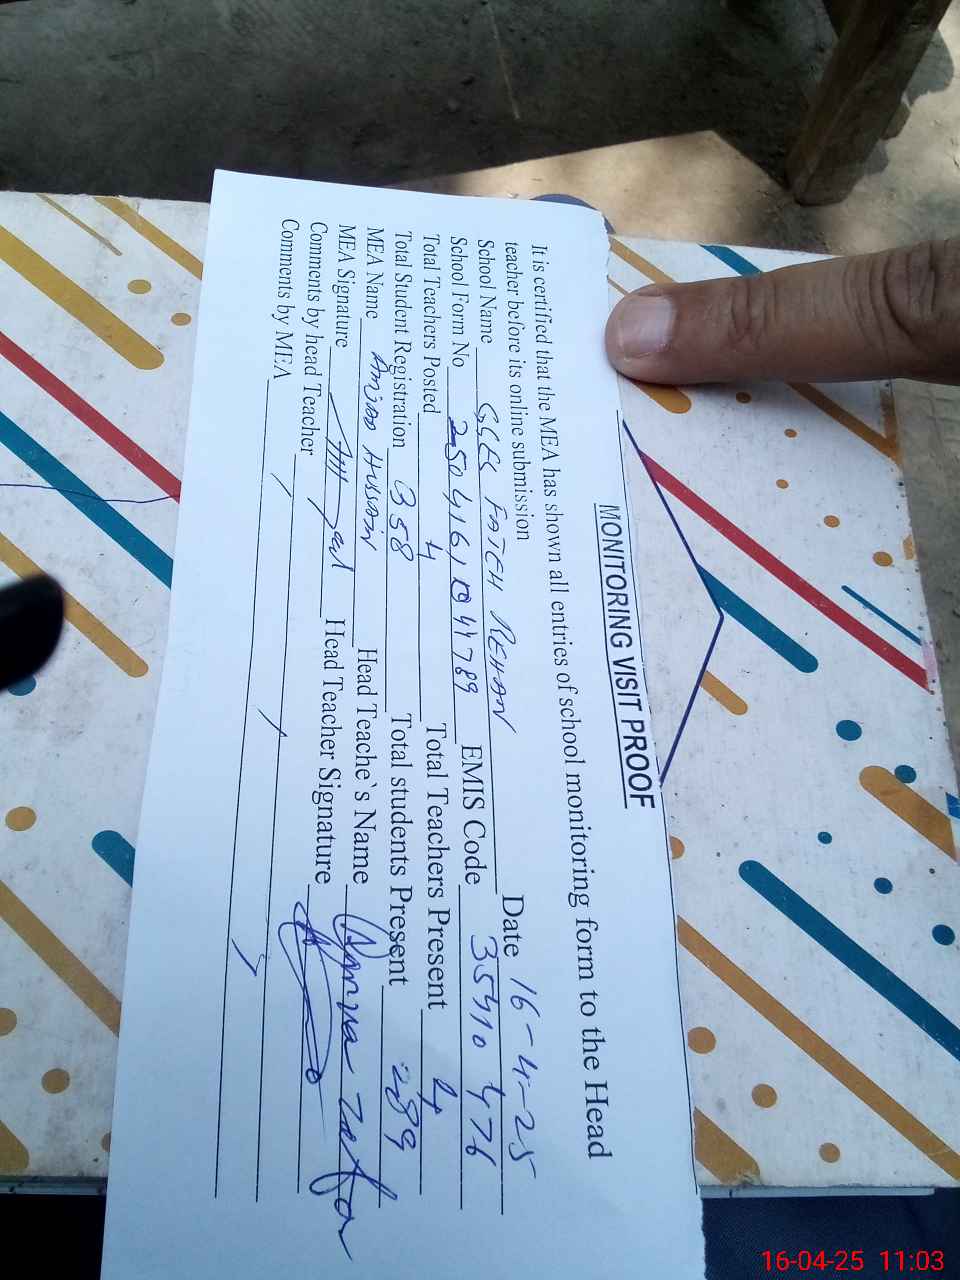 MONITORING VISIT PROOF
It is certified that the MEA has shown all entries of school monitoring form to the Head
teacher before its online submission
School Name FATEH REHAN Date 16-4-25
School Form No EMIS Code 35410476
Total Teachers Posted 4 Total Teachers Present 4
Total Student Registration 358 Total students Present 289
MEA Name Hussain Head Teache`s Name
MEA Signature Head Teacher Signature
Comments by head Teacher
Comments by MEA
16-04-25 11:03